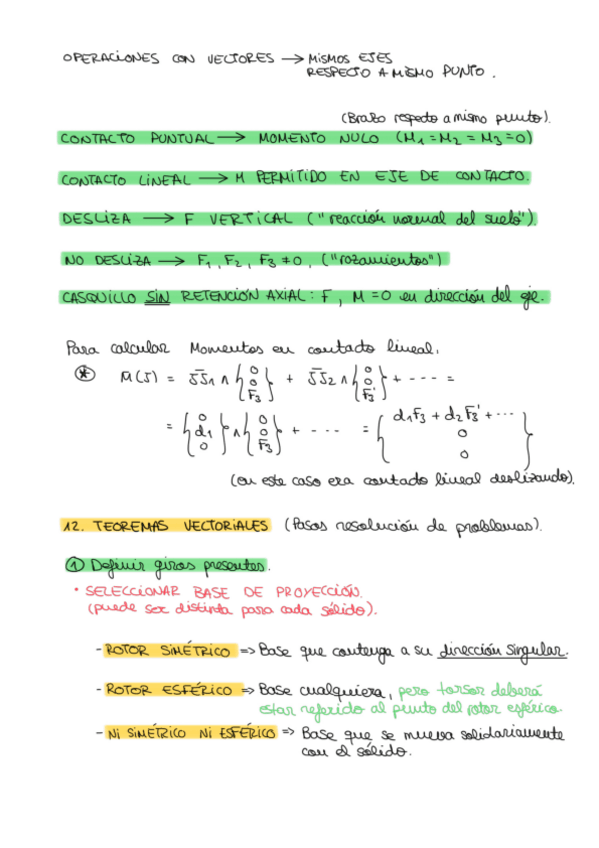 OPERACIONES CON VECTORES → MISMOS EJES
RESPECTO A MISMO PUNTO.
(Brazo respecto a mismo punto).
CONTACTO PUNTUAL → MOMENTO NULO (M1 = M2 = M3 = 0)
CONTACTO LINEAL → M PERMITIDO EN EJE DE CONTACTO.
DESLIZA → F VERTICAL ("reacción normal del suelo").
NO DESLIZA → F1, F2, F3 ≠ 0, ("rozamientos")
CASQUILLO SIN RETENCIÓN AXIAL: F, M = 0 en dirección del eje.
Para calcular Momentos en contacto lineal,
* M(J) = JJ1 ∧ {0 0 F3} + JJ2 ∧ {0 0 F3'} + ---- =
= {0 d1 0} ∧ {0 0 F3} + ---- = {d1F3 + d2F3' + ··· 0 0}
(en este caso era contacto lineal deslizando).
12. TEOREMAS VECTORIALES (Pasos resolución de problemas).
① Definir giros presentes.
• SELECCIONAR BASE DE PROYECCIÓN.
(puede ser distinta para cada sólido).
- ROTOR SIMÉTRICO => Base que contenga a su dirección singular.
- ROTOR ESFÉRICO => Base cualquiera, pero torsor deberá
estar referido al punto del rotor esférico.
- NI SIMÉTRICO NI ESFÉRICO => Base que se mueva solidariamente
con el sólido.